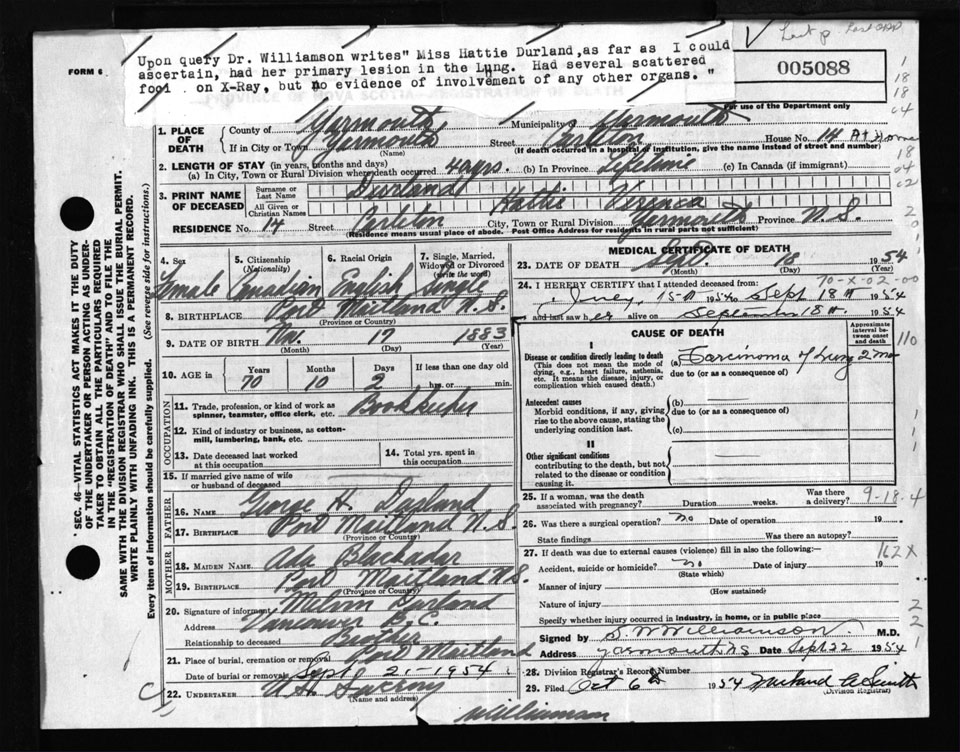 Upon query Dr. Williamson writes" Miss Hattie Durland,as far as I could
ascertain, had her primary lesion in the Lung. Had several scattered
fooi . on X-Ray, but no evidence of involvement of any other organs. "
FORM 6
005088
For use of the Department only
1. PLACE OF DEATH County of Yarmouth Municipality of Yarmouth
If in City or Town Yarmouth (Name) Street Carleton House No. 14 At Home
(If death occurred in a hospital of institution, give the name instead of street and number)
2. LENGTH OF STAY (in years, months and days)
(a) In City, Town or Rural Division where death occurred 40 yrs. (b) In Province Lifetime (c) In Canada (if immigrant)
3. PRINT NAME OF DECEASED Surname or Last Name Durland
All Given or Christian Names Hattie
RESIDENCE No. 14 Street Carleton City, Town or Rural Division Yarmouth Province N.S.
(Residence means usual place of abode. Post Office Address for residents in rural parts not sufficient)
4. Sex Female
5. Citizenship (Nationality) Canadian
6. Racial Origin English
7. Single, Married, Widowed or Divorced (write the word) Single
8. BIRTHPLACE Port Maitland N.S.
(Province or Country)
9. DATE OF BIRTH Nov. 17 1883
(Month) (Day) (Year)
10. AGE in Years 70 Months 10 Days 2 If less than one day old hrs. or min.
OCCUPATION
11. Trade, profession, or kind of work as spinner, teamster, office clerk, etc. Bookkeeper
12. Kind of industry or business, as cotton-mill, lumbering, bank, etc.
13. Date deceased last worked at this occupation
14. Total yrs. spent in this occupation
15. If married give name of wife or husband of deceased
FATHER
16. NAME George H. Durland
17. BIRTHPLACE Port Maitland N.S.
(Province or Country)
MOTHER
18. MAIDEN NAME Ada Blackadar
19. BIRTHPLACE Port Maitland N.S.
(Province or Country)
20. Signature of informant Melvin Durland
Address Vancouver B.C.
Relationship to deceased Brother
21. Place of burial, cremation or removal Port Maitland
Date of burial or removal Sept 21 - 1954
22. UNDERTAKER
(Name and address)
MEDICAL CERTIFICATE OF DEATH
23. DATE OF DEATH Sept. 18 1954
(Month) (Day) (Year)
24. I HEREBY CERTIFY that I attended deceased from:
70-X-02-00
15th 1954 to Sept 18th 1954
and last saw her alive on September 18th 1954
CAUSE OF DEATH
Approximate interval between onset and death
I
Disease or condition directly leading to death
(This does not mean the mode of dying, e.g., heart failure, asthenia, etc. It means the disease, injury, or complication which caused death.)
(a) Carcinoma of Lung 2 mos
due to (or as a consequence of)
Antecedent causes
Morbid conditions, if any, giving rise to the above cause, stating the underlying condition last.
(b)
due to (or as a consequence of)
(c)
II
Other significant conditions contributing to the death, but not related to the disease or condition causing it.
25. If a woman, was the death associated with pregnancy? Duration weeks. Was there a delivery?
9-18-4
26. Was there a surgical operation? no Date of operation 19
State findings Was there an autopsy?
27. If death was due to external causes (violence) fill in also the following:—
162X
Accident, suicide or homicide? no Date of injury 19
(State which)
Manner of injury
(How sustained)
Nature of injury
Specify whether injury occurred in industry, in home, or in public place
Signed by S. W. Williamson M.D.
Address Yarmouth NS Date Sept 22 1954
28. Division Registrar's Record Number
29. Filed Oct 6th 1954
(Division Registrar)
Williamson
SEC. 46—VITAL STATISTICS ACT MAKES IT THE DUTY
OF THE UNDERTAKER OR PERSON ACTING AS UNDER-
TAKER TO OBTAIN ALL THE PARTICULARS REQUIRED
IN THE "REGISTRATION OF DEATH" AND TO FILE THE
SAME WITH THE DIVISION REGISTRAR WHO SHALL ISSUE THE BURIAL PERMIT.
WRITE PLAINLY WITH UNFADING INK. THIS IS A PERMANENT RECORD.
Every item of information should be carefully supplied. (See reverse side for instructions.)